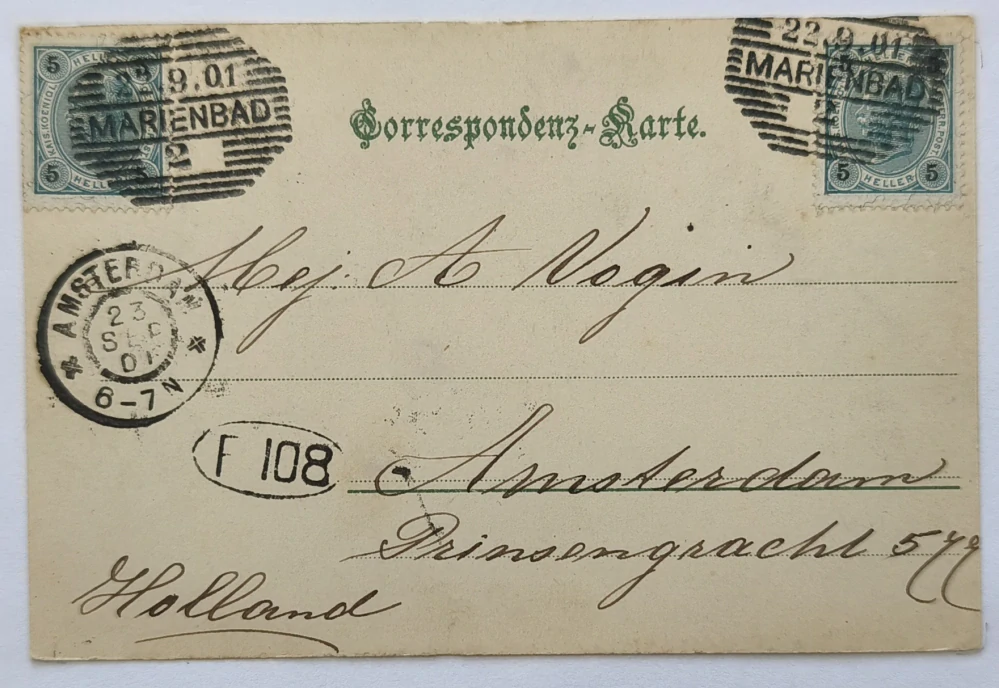 22.9.01
MARIENBAD
2
5 HELLER
KAIS.KOENIGL.
5 HELL 5
Correspondenz-Karte.
22.9.01
MARIENBAD
2
5 HELLER 5
Mej. A Vogin
AMSTERDAM
23
SEP
01
6-7N
F 108
Amsterdam
Prinsengracht 577
Holland